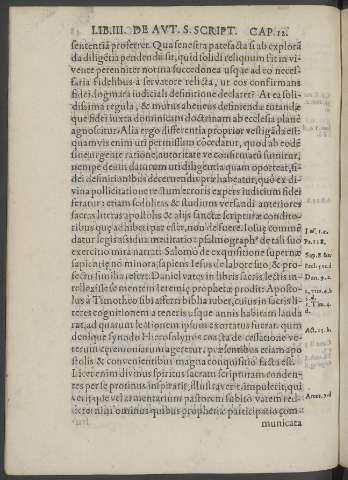 LIB.III. DE AVT. S. SCRIPT. CAP.12.
sententiã proferret. Qua fenestra patefacta si ab explorã
da diligẽtia pendendũ sit, quid solidi reliquum sit in vi
vente perenniter not ina succedonea usque ad eo neces
saria fidelibus à servatore relicta, ut eos confirmans
fidei dogmata iudicialis definitione declaret? At ea soli-
dissima regula, & mutus aheneus defienda tutandæ
que fidei iuxta dominicam doctrinam ab ecclesia planè
agnoscatur. Alia ergo differentia
quamvis enim uti permissum cocedatur, quod ab eodẽ
sine urgente ratione, autoritate ve confirmatũ sumitur,
nempe deum daturum uti diligentia quam oporteat, si
fidei definitionibus decernendis præhabeatur, quo ex di-
vina pollicitatione rectum erroris expers iudicium fidei
feratur: etiam sedulitas & studium versandi anteriores
sacras literas apostolis & aliis sanctæ scripturæ condito-
ribus quę adhiberi par esset, non defuere. Iosue commẽ
datur legis assidua meditatio: psalmographꝰ de tali suo
exercitio mira narrat: Salomõ de exquisitione supernæ
sapientiæ nõ minora, sapiens Iesus de labore suo, & pro-
fectu similia refert: Daniel vates in libris sacris lectis in-
tellexisse se mentem Ieremię prophetæ prodit: Aposto-
lus à Timotheo sibi afferri biblia iubet, cuius in sacris li-
teris cognitionem a teneris usque annis habitam lauda
rat, ad quarum lectionem ipsum exortatus fuerat. quin
denique synodo Hierosolymis coacta de cessatione ve-
terum ceremoniarum ageretur, præsentibus etiam apo
stolis & convenientibus magna conquisitio facta est.
Licet enim divinus spiritus sacram scripturam conden-
tes per se protinus inspirarit, illustraverit, impulerit, qui
verit que vel armentarium pastorem subito vatem red-
dere: nihilominus quibus prophetiæ participatio com
municata
Ios. 1. c.
Ps. 118.
Sap. 8. b.c
Dan. 9. a.
Act. 15. b.
Amos. 7. d